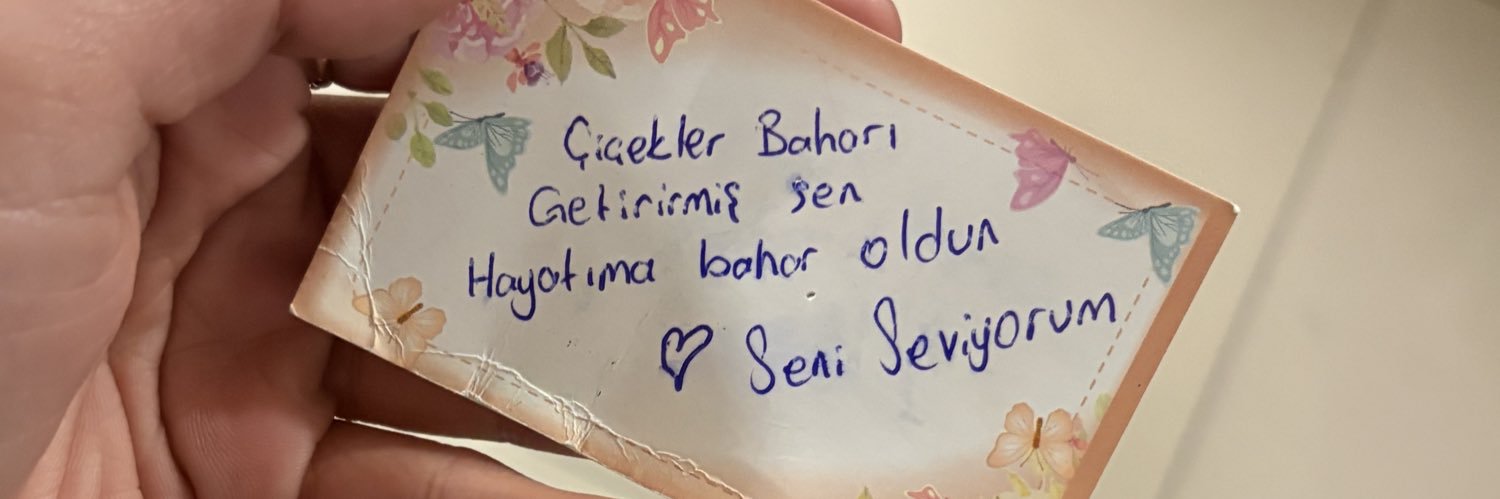 Çiçekler Baharı
Getirirmiş sen
Hayatıma bahar oldun
♡ Seni Seviyorum